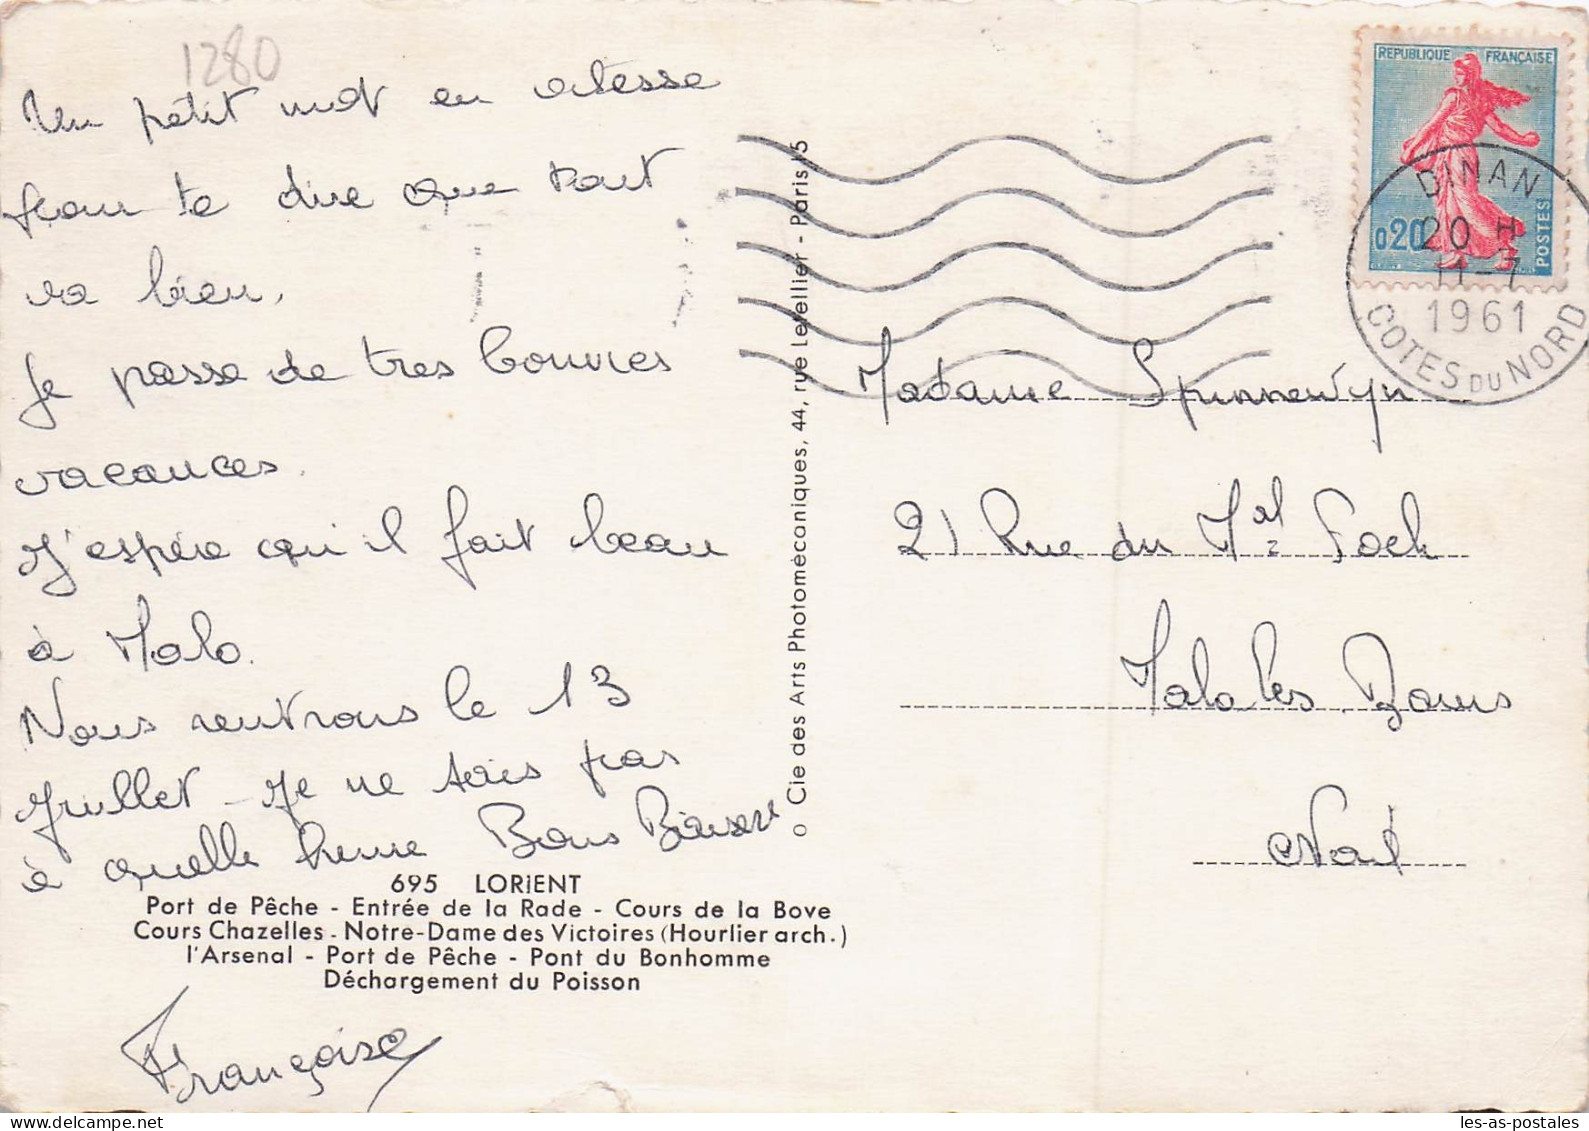 1280
Un petit mot en vitesse
pour te dire que tout
va bien.
Je passe de tres bonnes
vacances.
J'espère qu'il fait beau
à Malo.
Nous rentrons le 13
Juillet - Je ne sais pas
à quelle heure Bons Baisers
Françoise
695 LORIENT
Port de Pêche - Entrée de la Rade - Cours de la Bove
Cours Chazelles - Notre-Dame des Victoires (Hourlier arch.)
l'Arsenal - Port de Pêche - Pont du Bonhomme
Déchargement du Poisson
Cie des Arts Photomécaniques, 44, rue Letellier - Paris 15
REPUBLIQUE FRANÇAISE
0,20
POSTES
DINAN
20 H
11-7
1961
COTES DU NORD
Madame Spinnewyn
21 Rue du Mal Foch
Malo les Bains
Nord
les-as-postales.com